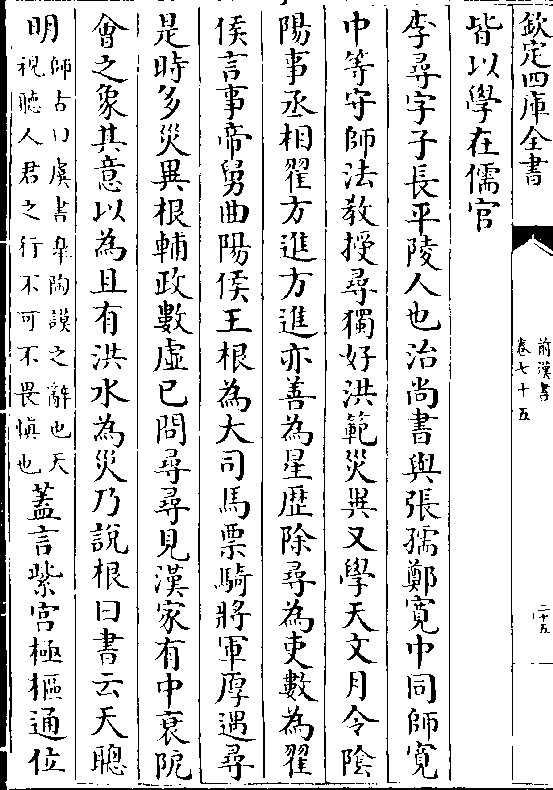 欽定四庫全書
前漢書
卷七十五
二十五
皆以學在儒官
李尋字子長平陵人也治尚書與張孺鄭寛中同師寛
中等守師法教授尋獨好洪範災異又學天文月令隂
陽事丞相翟方進方進亦善為星歴除尋為吏數為翟
侯言事帝舅曲陽侯王根為大司馬票騎將軍厚遇尋
是時多災異根輔政數虛已問尋尋見漢家有中衰阸
會之象其意以為且有洪水為災乃說根曰書云天聰
明師古曰虞書臯陶謨之辭也天視聽人君之行不可不畏慎也蓋言紫宮極樞通位